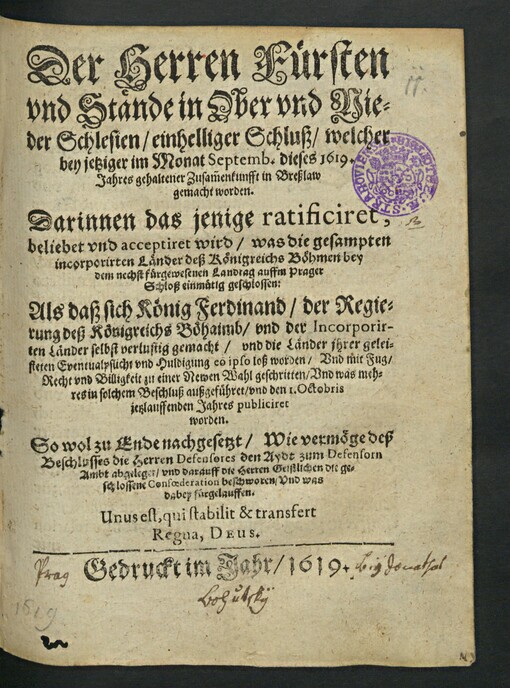 Der Herren Fürsten
vnd Stände in Ober vnd Nie-
der Schlesien / einhelliger Schluß / welcher
bey jetziger im Monat Septemb. dieses 1619.
Jahres gehaltener Zusam̃enkunfft in Breßlaw
gemacht worden.
Darinnen das jenige ratificiret,
beliebet vnd acceptiret wird / was die gesampten
incorporirten Länder deß Königreichs Böhmen bey
dem nechst fürgewesenen Landtag auffm Prager
Schloß einmütig geschlossen:
Als daß sich König Ferdinand / der Regie-
rung deß Königreichs Böhaimb / vnd der Incorporir-
ten Länder selbst verlustig gemacht / vnd die Länder jhrer gelei-
steten Eventualpflicht vnd Huldigung eo ipso loß worden / Vnd mit Fug /
Recht vnd Billigkeit zu einer Newen Wahl geschritten / Vnd was meh-
res in solchem Beschluß außgeführet / vnd den 1. Octobris
jetzlauffenden Jahres publiciret
worden.
So wol zu Ende nachgesetzt / Wie vermöge deß
Beschlusses die Herren Defensores den Aydt zum Defensorn
Ambt abgeleget / vnd darauff die Herren Geistlichen die ge-
schlossene Confœderation beschworen / Vnd was
dabey fürgelauffen.
Unus est, qui stabilit & transfert
Regna, DEUS.
Gedruckt im Jahr / 1619.
Prag
1619